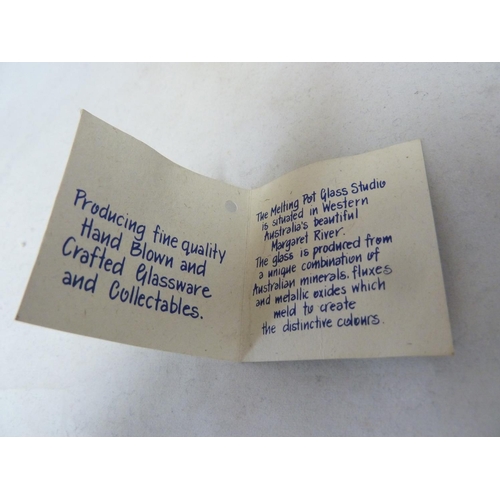 Producing fine quality
Hand Blown and
Crafted Glassware
and Collectables.
The Melting Pot Glass Studio
is situated in Western
Australia's beautiful
Margaret River.
The glass is produced from
a unique combination of
Australian minerals, fluxes
and metallic oxides which
meld to create
the distinctive colours.